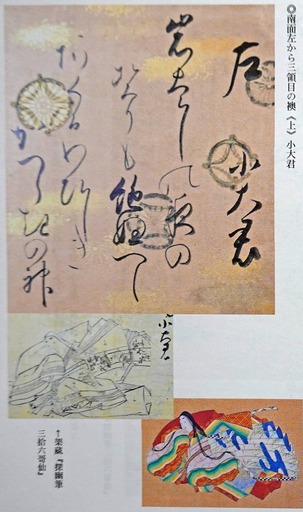 ◎南面左から三領目の襖《上》小大君
左　小大君
岩はしの夜の
ちきりも絶ぬへし
あくるわひしき
かつらきの神
小大君
↑架蔵『探幽筆
三拾六哥仙』